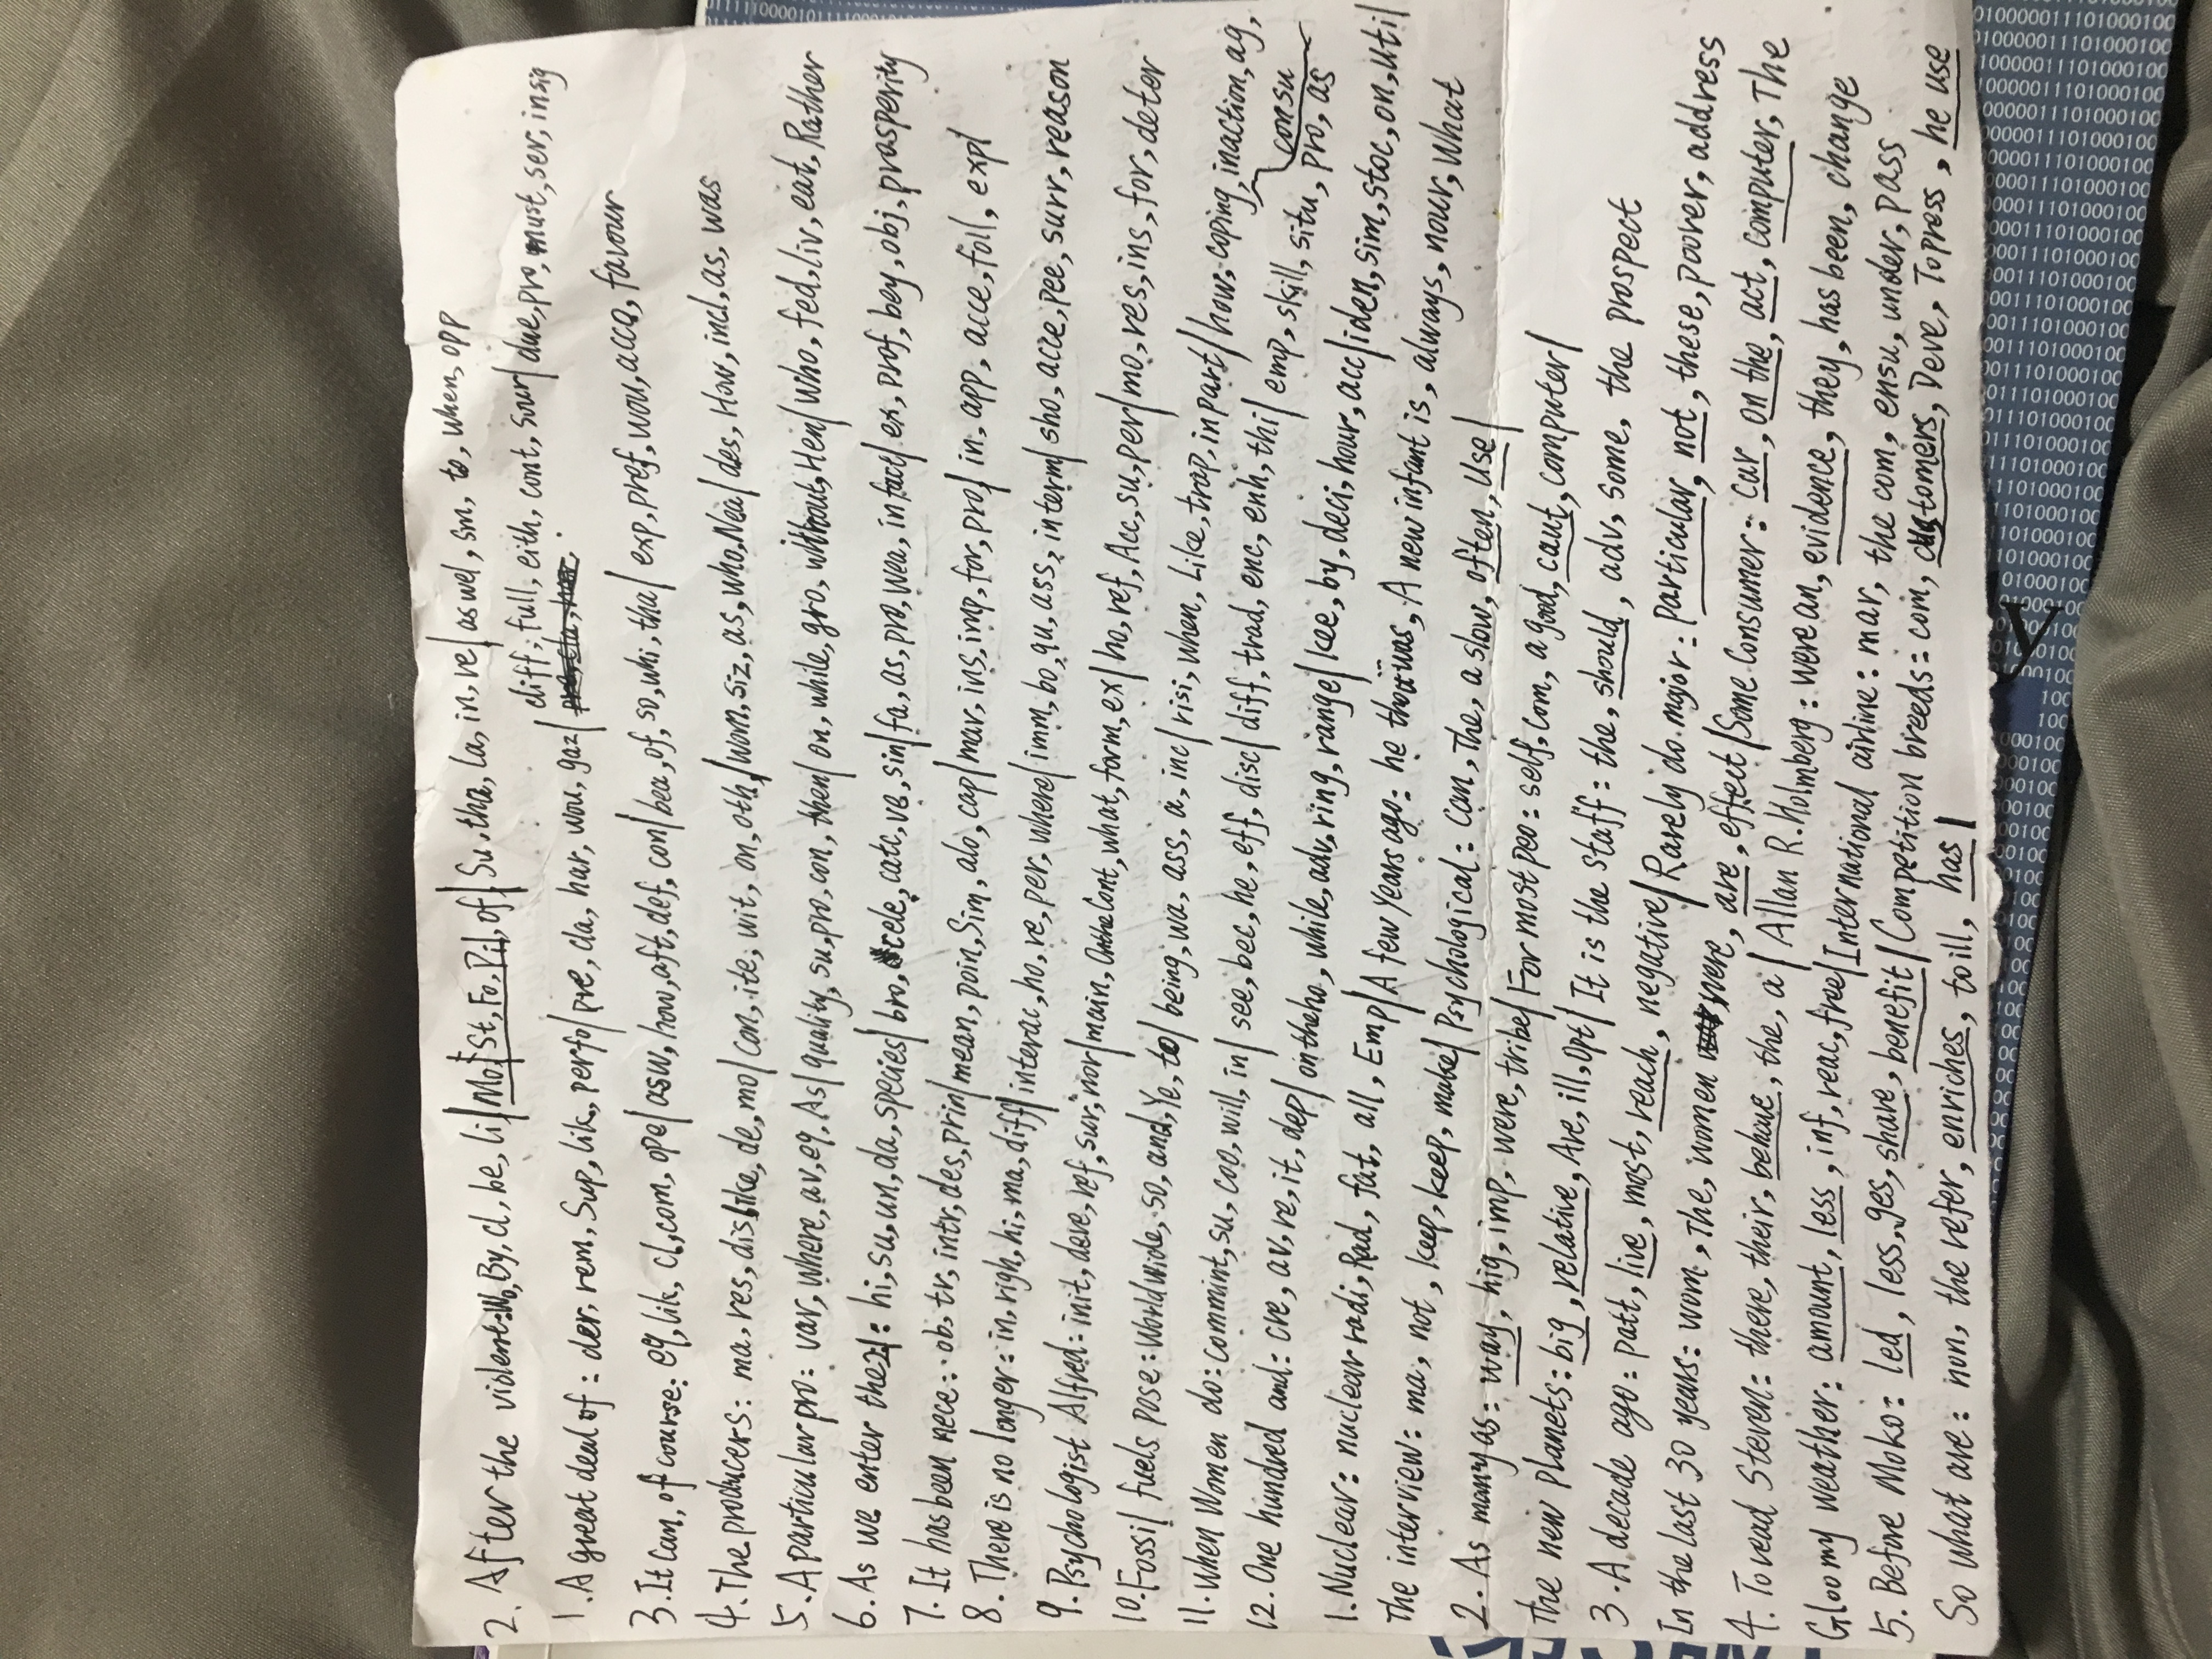 2. After the violent: Wo, By, cl, be, li/Mo, St, Fo, Pil, of/ Su, tha, la, in, ve/ as wel, sm, to, when, opp
diff, full, eith, cont, sour/ due, pro, must, ser, insig
1. A great deal of: der, rem, Sup, lik, perfo/ pre, cla, har, wou, gaz/
3. It can, of course: eq, lik, cl, com, ope/ asw, how, aft, def, con/ bea, of, so, whi, tha/ exp, pref, wou, acco, favour
4. The producers: ma, res, dislike, de, mo/ con, ite, wit, on, oth,/ wom, siz, as, who, Nea/ des, How, incl, as, was
5. A particular pro: var, where, av, eq, As/ quality, su, pro, con, then/ on, while, gro, without, Hen/ Who, fed, liv, eat, Rather
6. As we enter the 21: hi, su, un, da, species/ bro, cele, catc, ve, sin/ fa, as, pro, wea, in fact/ ex, prof, bey, obj, prosperity
7. It has been nece: ob, tr, intr, des, prin/ mean, poin, Sim, alo, cap/ mar, ins, imp, for, pro/ in, app, acce, foll, expl
8. There is no longer: in, righ, hi, ma, diff/ interac, ho, re, per, where/ imm, bo, qu, ass, interm/ sho, acce, pee, surr, reason
9. Psychologist Alfred: init, deve, ref, sur, nor/ main, On the Cont, what, form, ex/ ho, ref, Acc, su, per/ mo, res, ins, for, deter
10. Fossil fuels pose: Worldwide, so, and, Ye, to/ being, wa, ass, a, inc/ risi, when, Like, trap, in part/ how, coping, inaction, ag,
consu
11. When Women do: commint, su, coo, will, in/ see, bec, he, eff, disc/ diff, trad, enc, enh, thi/ emp, skill, situ, pro, as
12. One hundred and: cre, av, re, it, dep/ on the ho, while, adv, ring, range/ kee, by, deci, hour, acc/ iden, sim, stoc, on, util
1. Nuclear: nuclear radi, Rad, fat, all, Emp/ A few Years ago: he was, A new infant is, always, nour, What
The interview: ma, not, keep, keep, make/ Psychological: can, The, a slow, often, Use/
2. As many as: way, hig, imp, were, tribe/ For most peo: self, com, a good, caut, computer/
The new planets: big, relative, Are, ill, Opt/ It is the staff: the, should, adv, some, the prospect
3. A decade ago: patt, live, most, reach, negative/ Rarely do major: particular, not, these, poorer, address
In the last 30 years: wom, The, women were, are, effect/ Some Consumer: car, on the, act, computer, The
4. To read Steven: there, their, behave, the, a/ Allan R. Holmberg: were an, evidence, they, has been, change
Gloomy weather: amount, less, inf, reac, free/ International airline: mar, the com, ensu, under, pass
5. Before Moko: led, less, ges, share, benefit/ Competition breeds: com, customers, Deve, To press, he use
So what are: non, the refer, enriches, to ill, has/